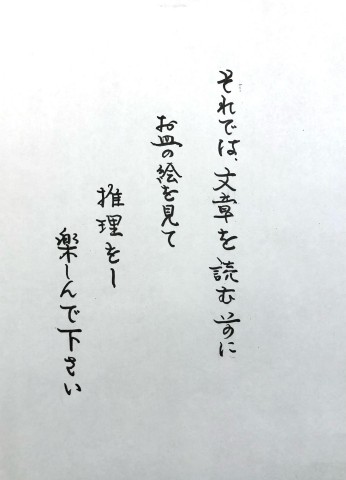 それでは、文章を読む前に
お皿の絵を見て
推理をし
楽しんで下さい